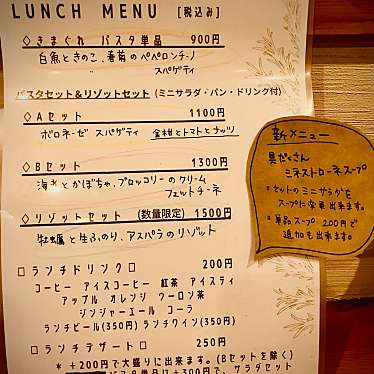 LUNCH MENU [税込み]
◇きまぐれ パスタ単品 900円
白魚ときのこ、春菊のペペロンチーノ
スパゲティ
パスタセット&リゾットセット(ミニサラダ・パン・ドリンク付)
◇Aセット 1100円
ボロネーゼ スパゲティ 金柑とトマトとナッツ
◇Bセット 1300円
海老とかぼちゃ、ブロッコリーのクリーム
フェルトチーネ
◇リゾットセット (数量限定) 1500円
牡蠣と生ふのり、アスパラのリゾット
□ランチドリンク□ 200円
コーヒー アイスコーヒー 紅茶 アイスティ
アップル オレンジ ウーロン茶
ジンジャーエール コーラ
ランチビール(350円) ランチワイン(350円)
□ランチデザート□ 250円
*+200円で大盛りに出来ます。(Bセットを除く)
パスタ単品は+300円で、サラダセット
新メニュー
具だくさん
ミネストローネスープ
*セットのミニサラダを
スープに変更出来ます。
*単品スープ 200円で
追加も出来ます。